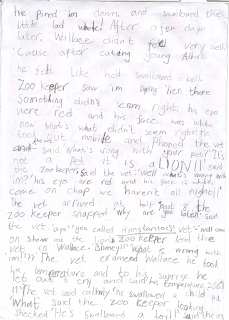 he pined him down, and swallowed the
little lad whole! After a few days
later, Wallace didn't feel very well.
Cause after eating young Albert
he felt like he'd swallowed a bell.
Zoo keeper saw im lying their there
Something didn't seem right, his eyes
were red and his face was white
now that's what didn't seem right! he
took out mobile and Phoned the vet
and said What's wrong with your pet? It's
not a Pet it is a LION!! said
the Zoo keeper, said the vet: well what's wrong with
im? his eyes are red and his face is white
come on chap we haven't all night!
The vet arrived at half Past 8, the
Zoo keeper snapped why are you late? said
the vet: "are you called
on show me the Zoo keeper lead the
vet to Wallace. Blimey!! What is wrong with
im??? The vet examend Wallace he took
he temperature and to his suprise he
let out a cry and said his temperature 200
!!! The vet said calmly he swallowed a child
"What" said the Zoo keeper looking
shocked "He's swallowed a boy!!" said the vet